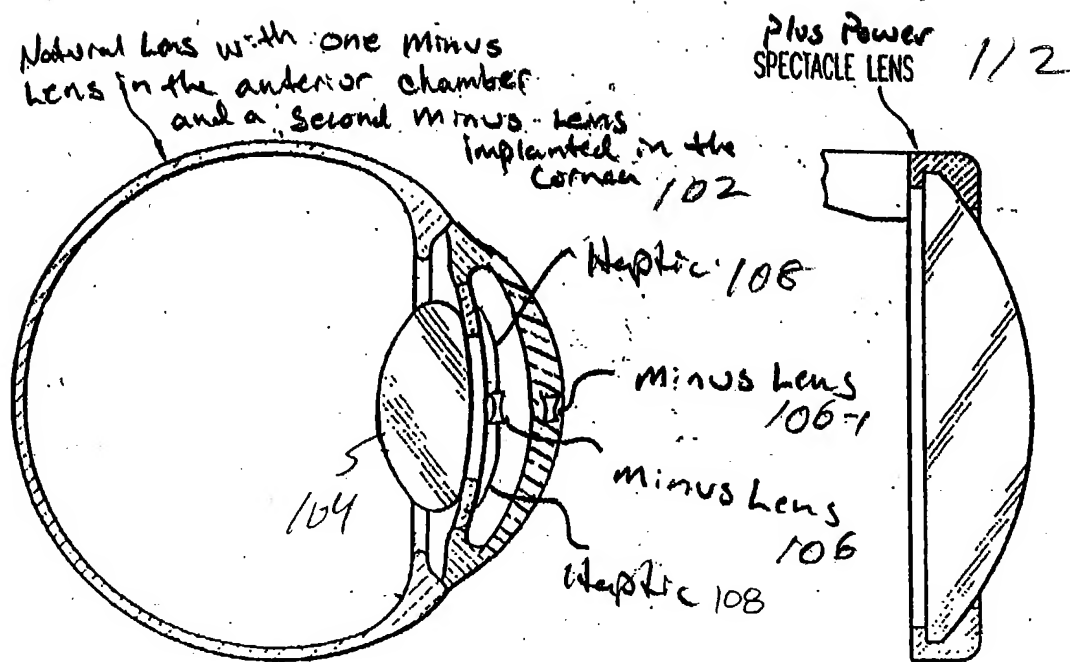 Natural Lens with one minus
Lens in the anterior chamber
and a second minus lens
implanted in the
Cornea 102
Plus Power 112
SPECTACLE LENS
Haptic 108
minus Lens
106-1
minus Lens
106
104
Haptic 108